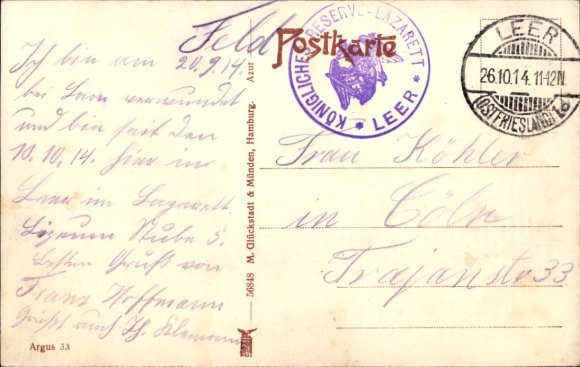 Feld
Postkarte
KÖNIGLICHES RESERVE-LAZARETT
* LEER *
LEER
26.10.14. 11-12N.
(OSTFRIESLAND)
Ich bin am
20.9.14.
bei Laon verwundet
und bin seit den
10.10.14. hier in
Leer im Lazarett.
Lizeum Stube 5.
Besten Gruß von
Franz Hoffmann
Grüßt auch
Frau Köhler
in Cöln
Trajanstr 33
Azur
56848 M. Glückstadt & Münden, Hamburg.
Argus 33